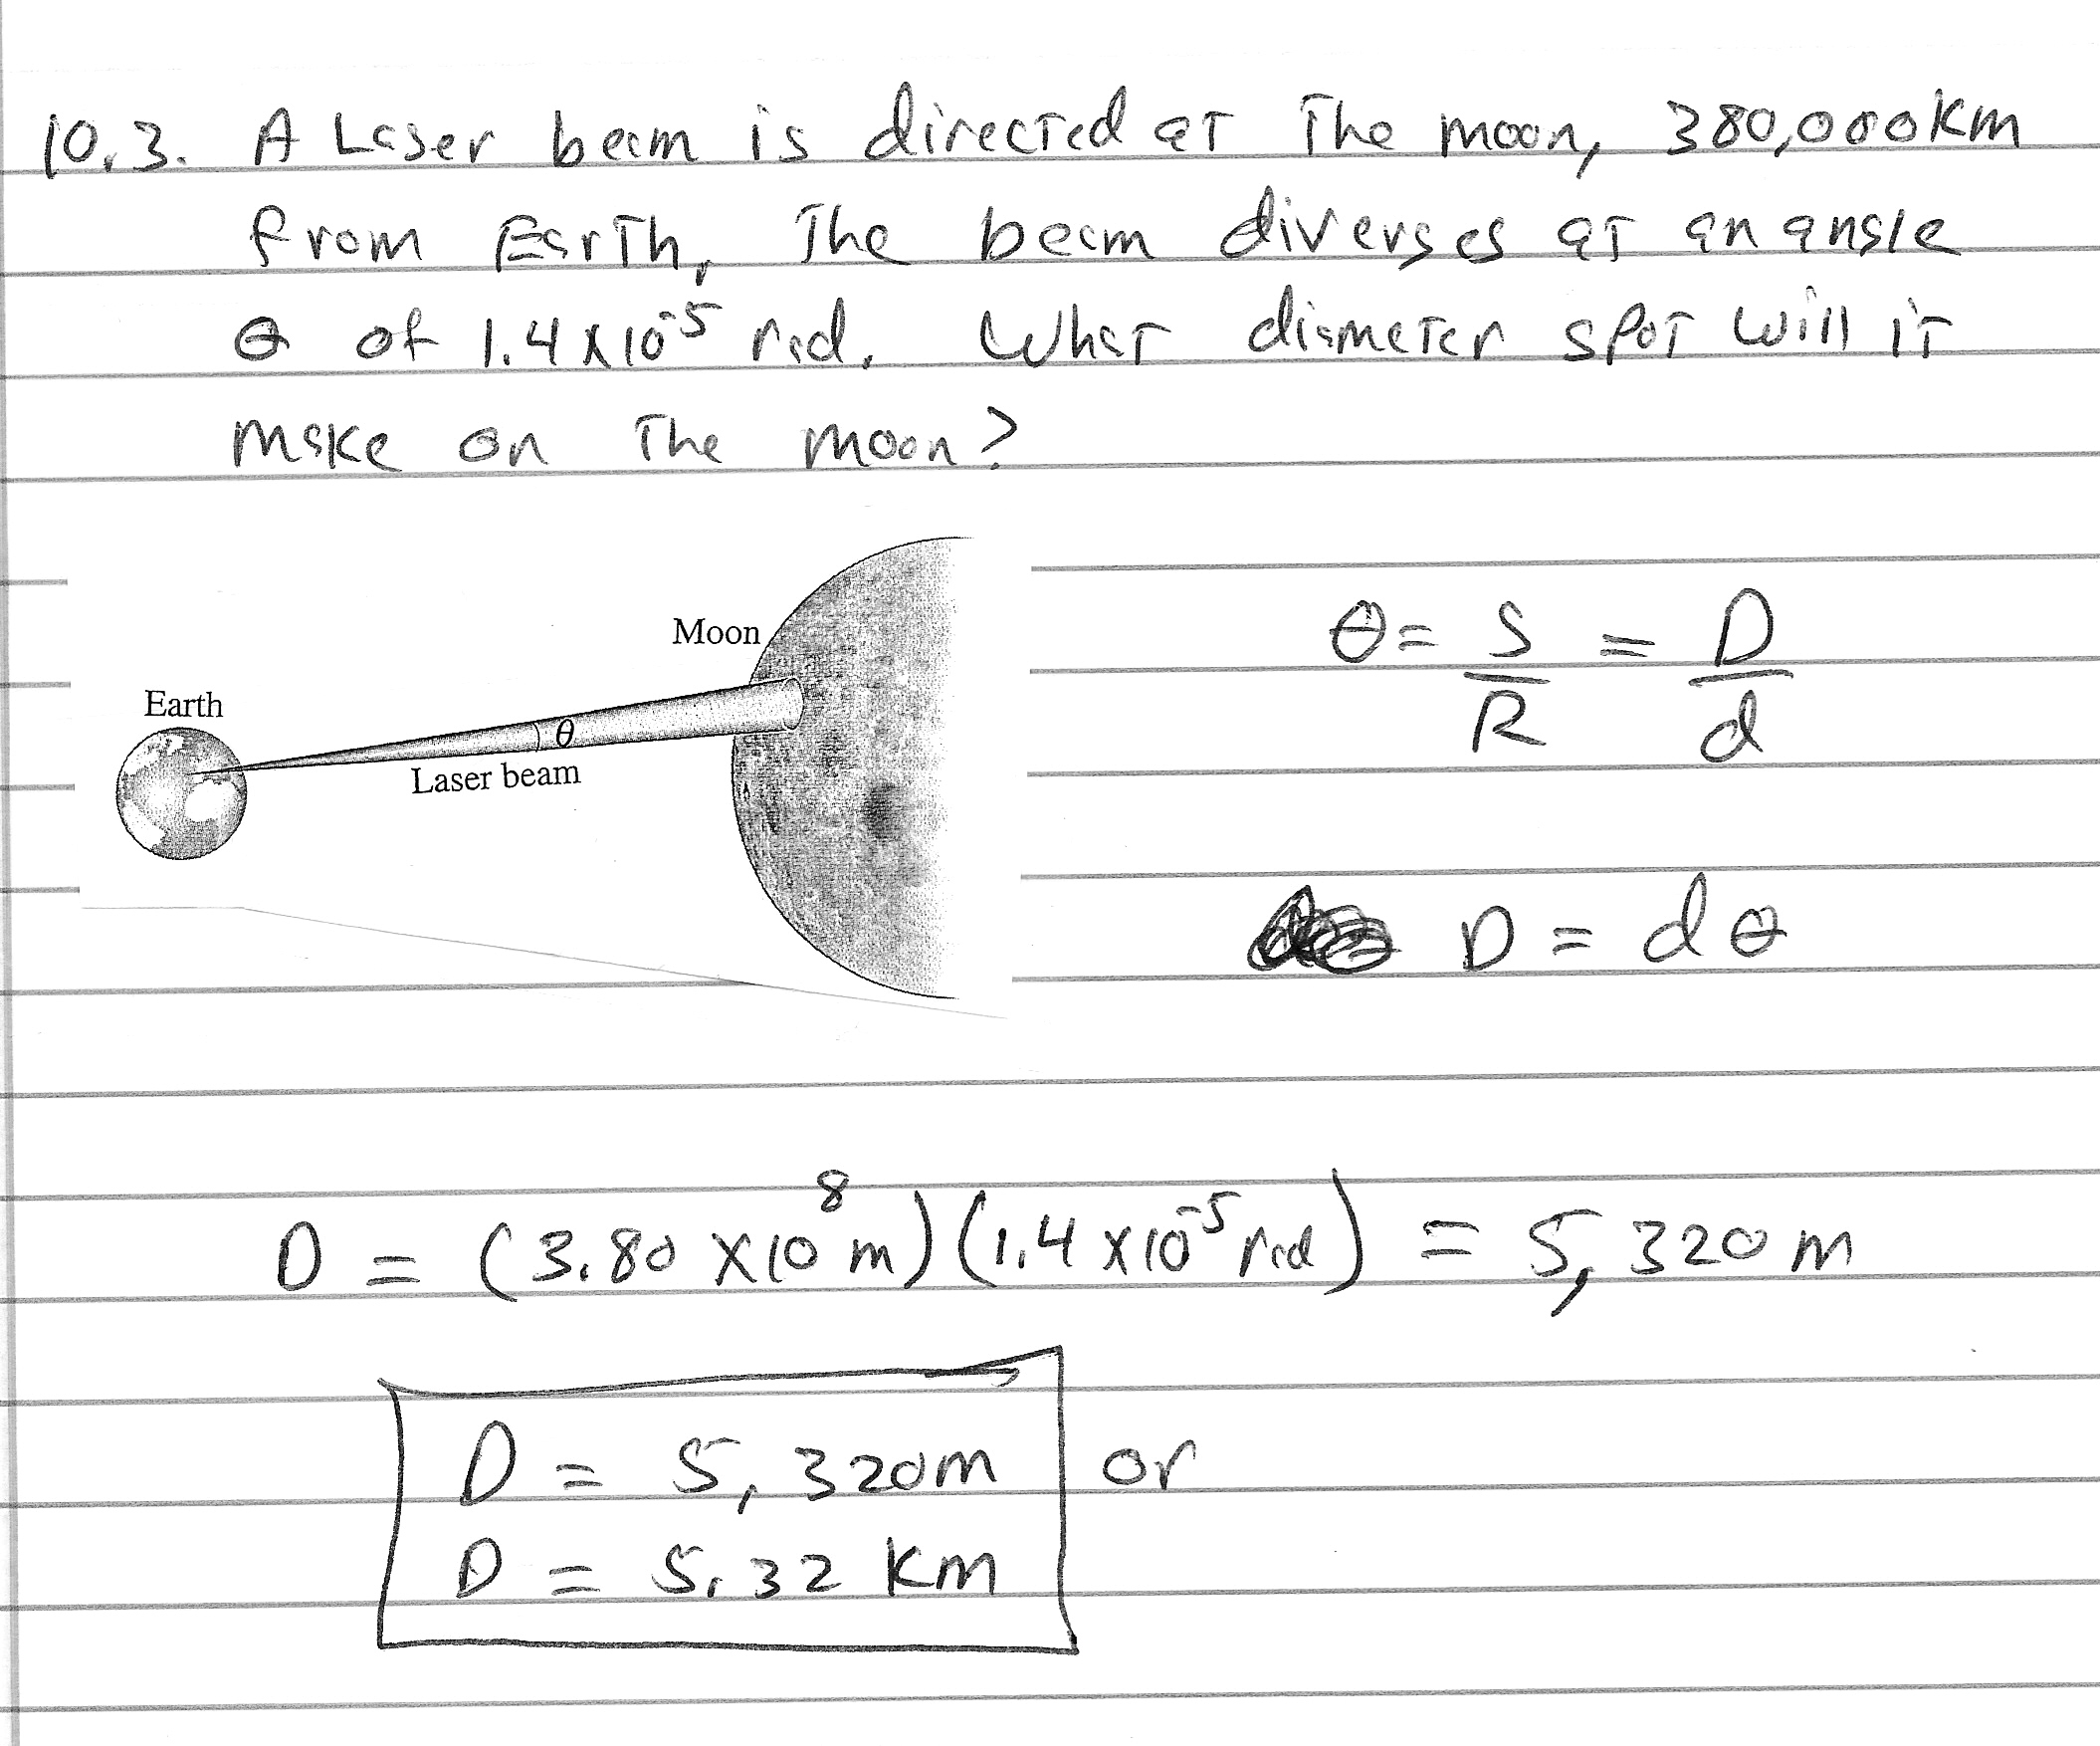 10.3. A Laser beam is directed at the moon, 380,000 km
from Earth, The beam diverges at an angle
θ of 1.4 x 10⁻⁵ rad. What diameter spot will it
make on the moon?
Moon
Earth
θ
Laser beam
θ = S/R = D/d
D = dθ
D = (3.80 x 10⁸ m)(1.4 x 10⁻⁵ rad) = 5,320 m
D = 5,320m or
D = 5.32 Km